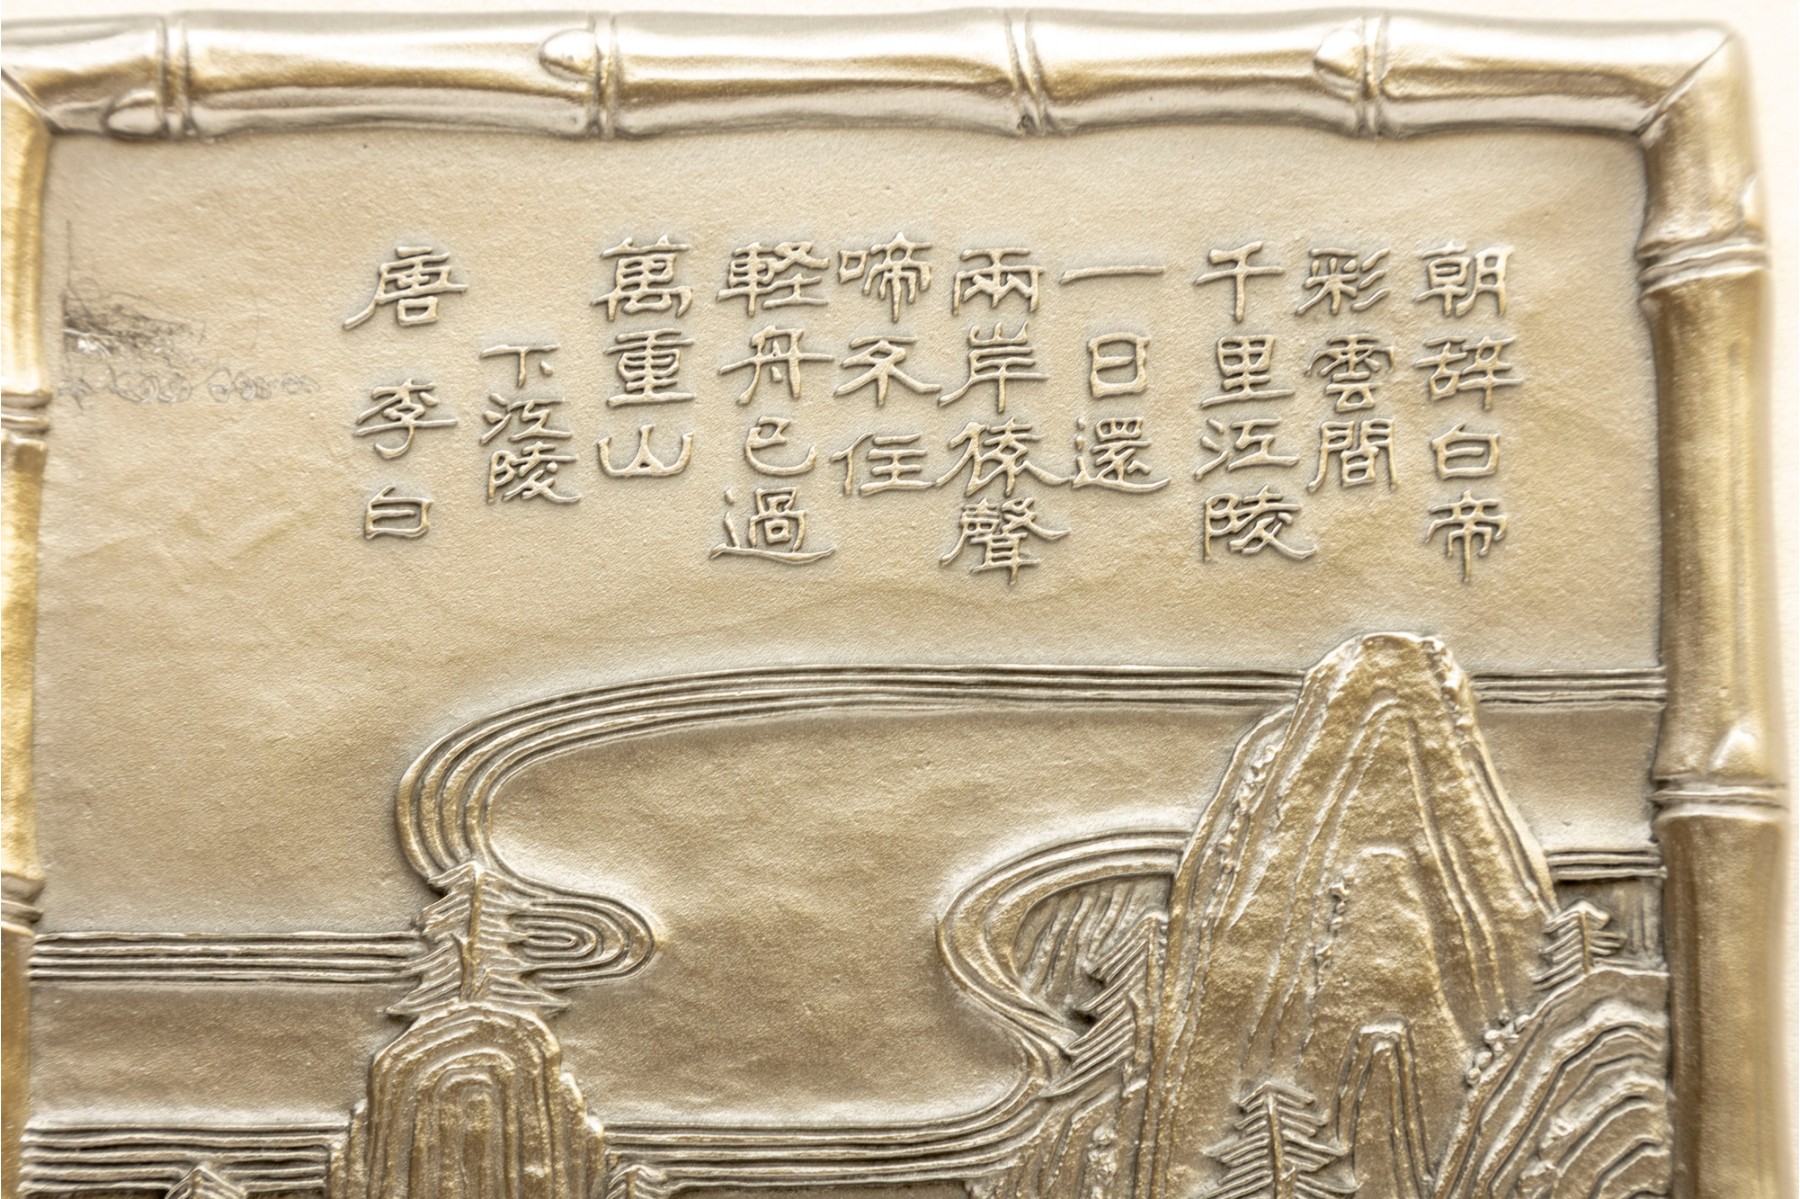 朝辞白帝
彩雲間
千里江陵
一日還
兩岸猿聲
啼不住
軽舟已過
萬重山
下江陵
唐 李白